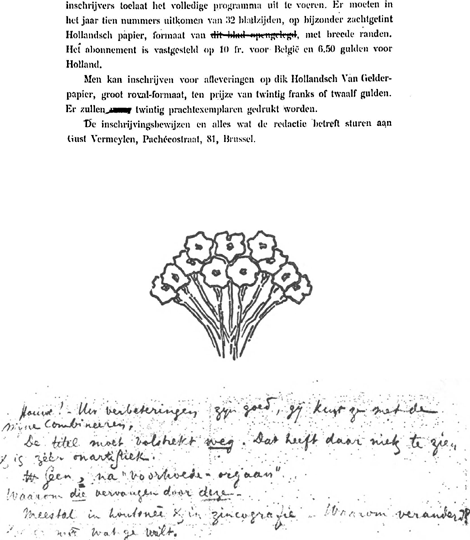 inschrijvers toelaat het volledige programma uit te voeren. Er moeten in
het jaar tien nummers uitkomen van 32 bladzijden, op bijzonder zachtgetint
Hollandsch papier, formaat van dit blad opengelegd, met breede randen.
Het abonnement is vastgesteld op 10 fr. voor België en 6,50 gulden voor
Holland.
Men kan inschrijven voor afleveringen op dik Hollandsch Van Gelder-
papier, groot royal-formaat, ten prijze van twintig franks of twaalf gulden.
Er zullen twintig prachtexemplaren gedrukt worden.
De inschrijvingsbewijzen en alles wat de redactie betreft sturen aan
Gust Vermeylen, Pachécostraat, 81, Brussel.
! - Uw verbeteringen zijn goed, gij kunt ze met de
mijne combineeren,
De titel moet volstrekt weg. Dat heeft daar niets te zien,
is zeer onartistiek.
Geen , na "voorhoede-orgaan"
Waarom die vervangen door deze -
Meestal in houtsneê & in zincografie - Waarom veranderd?
wat ge wilt.